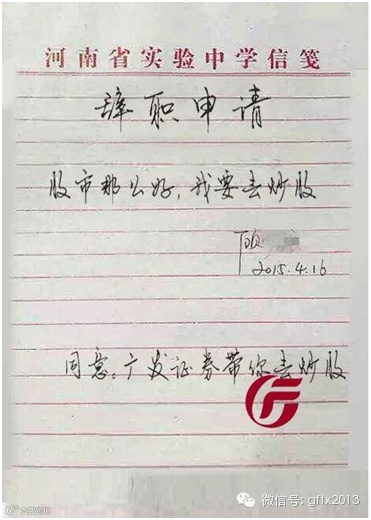 河南省实验中学信笺
辞职申请
股市那么好，我要去炒股
顾
2015.4.16
同意。广发证券带你去炒股
微信号: gftx2013